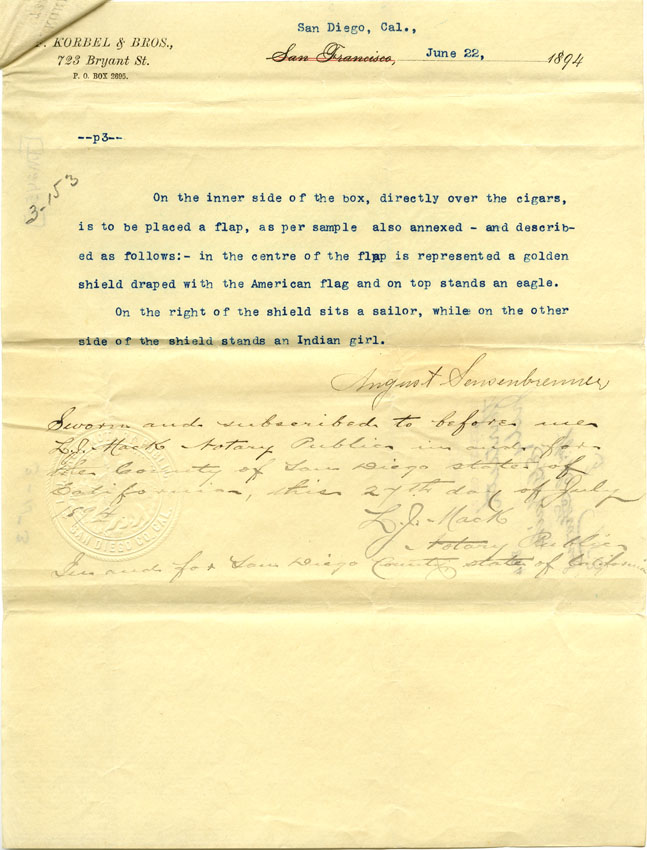 F. KORBEL & BROS.,
723 Bryant St.
P. O. BOX 2695.
San Diego, Cal.,
San Francisco, June 22, 1894
--p3--
3-153
On the inner side of the box, directly over the cigars,
is to be placed a flap, as per sample also annexed - and describ-
ed as follows:- in the centre of the flap is represented a golden
shield draped with the American flag and on top stands an eagle.
On the right of the shield sits a sailor, while on the other
side of the shield stands an Indian girl.
August Sensenbrenner
Sworn and subscribed to before me
L. J. Mack Notary Public in and for
the County of San Diego state of
California, this 27th day of July
1894
L. J. Mack
Notary Public
In and for San Diego County state of California
SAN DIEGO CO. CAL.